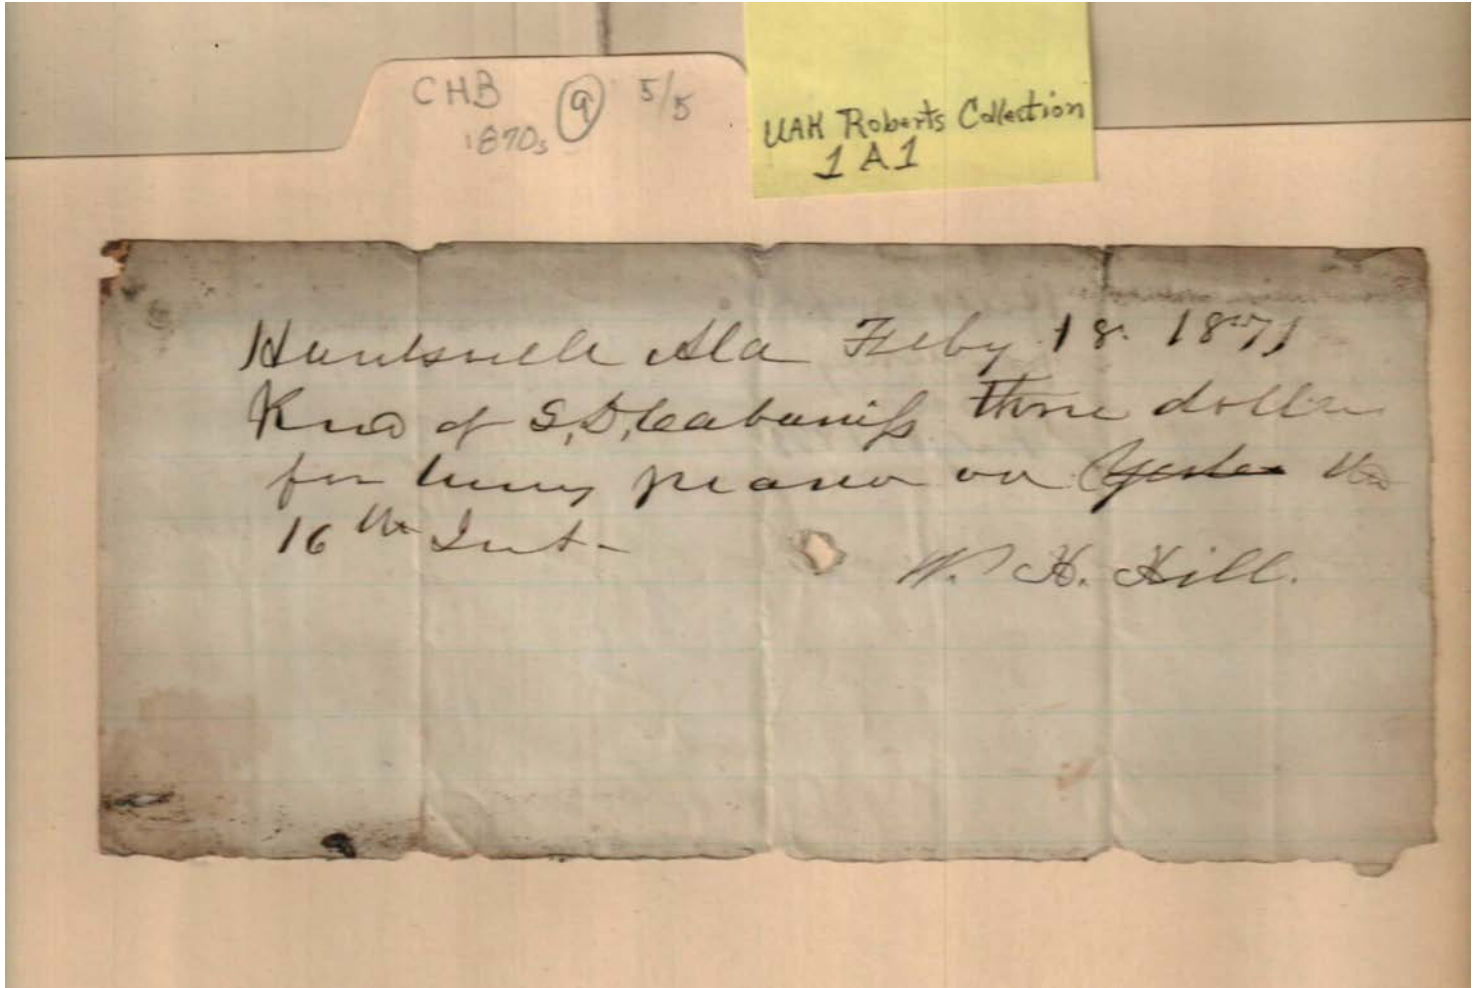 CHB
1870s
9
5/5
UAH Roberts Collection
1 A 1
Huntsville Ala Feby 18. 1871
Recd of S,D,Cabaniss three dollars
for tuning piano on Yester the
16th Inst-
W. H. Hill.